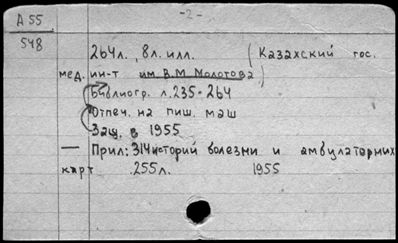 - 2 -
А 55
548
264л., 8л. илл. (Казахский гос.
мед. ин-т им В.М Молотова)
Библиогр. л.235-264
Отпеч. на пиш. маш
Защ. в 1955
— Прил: 314историй болезни и амбулаторних
карт 255л. 1955